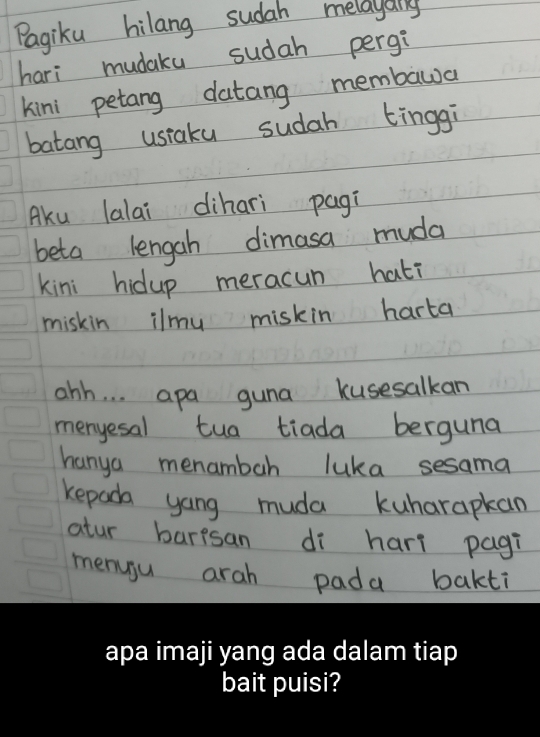 Pagiku hilang sudah melayang
hari mudaku sudah pergi
kini petang datang membawa
batang usiaku sudah tinggi
Aku lalai dihari pagi
beta lengah dimasa muda
kini hidup meracun hati
miskin ilmu miskin harta
ahh... apa guna kusesalkan
menyesal tua tiada berguna
hanya menambah luka sesama
kepada yang muda kuharapkan
atur barisan di hari pagi
menuju arah pada bakti
apa imaji yang ada dalam tiap
bait puisi?